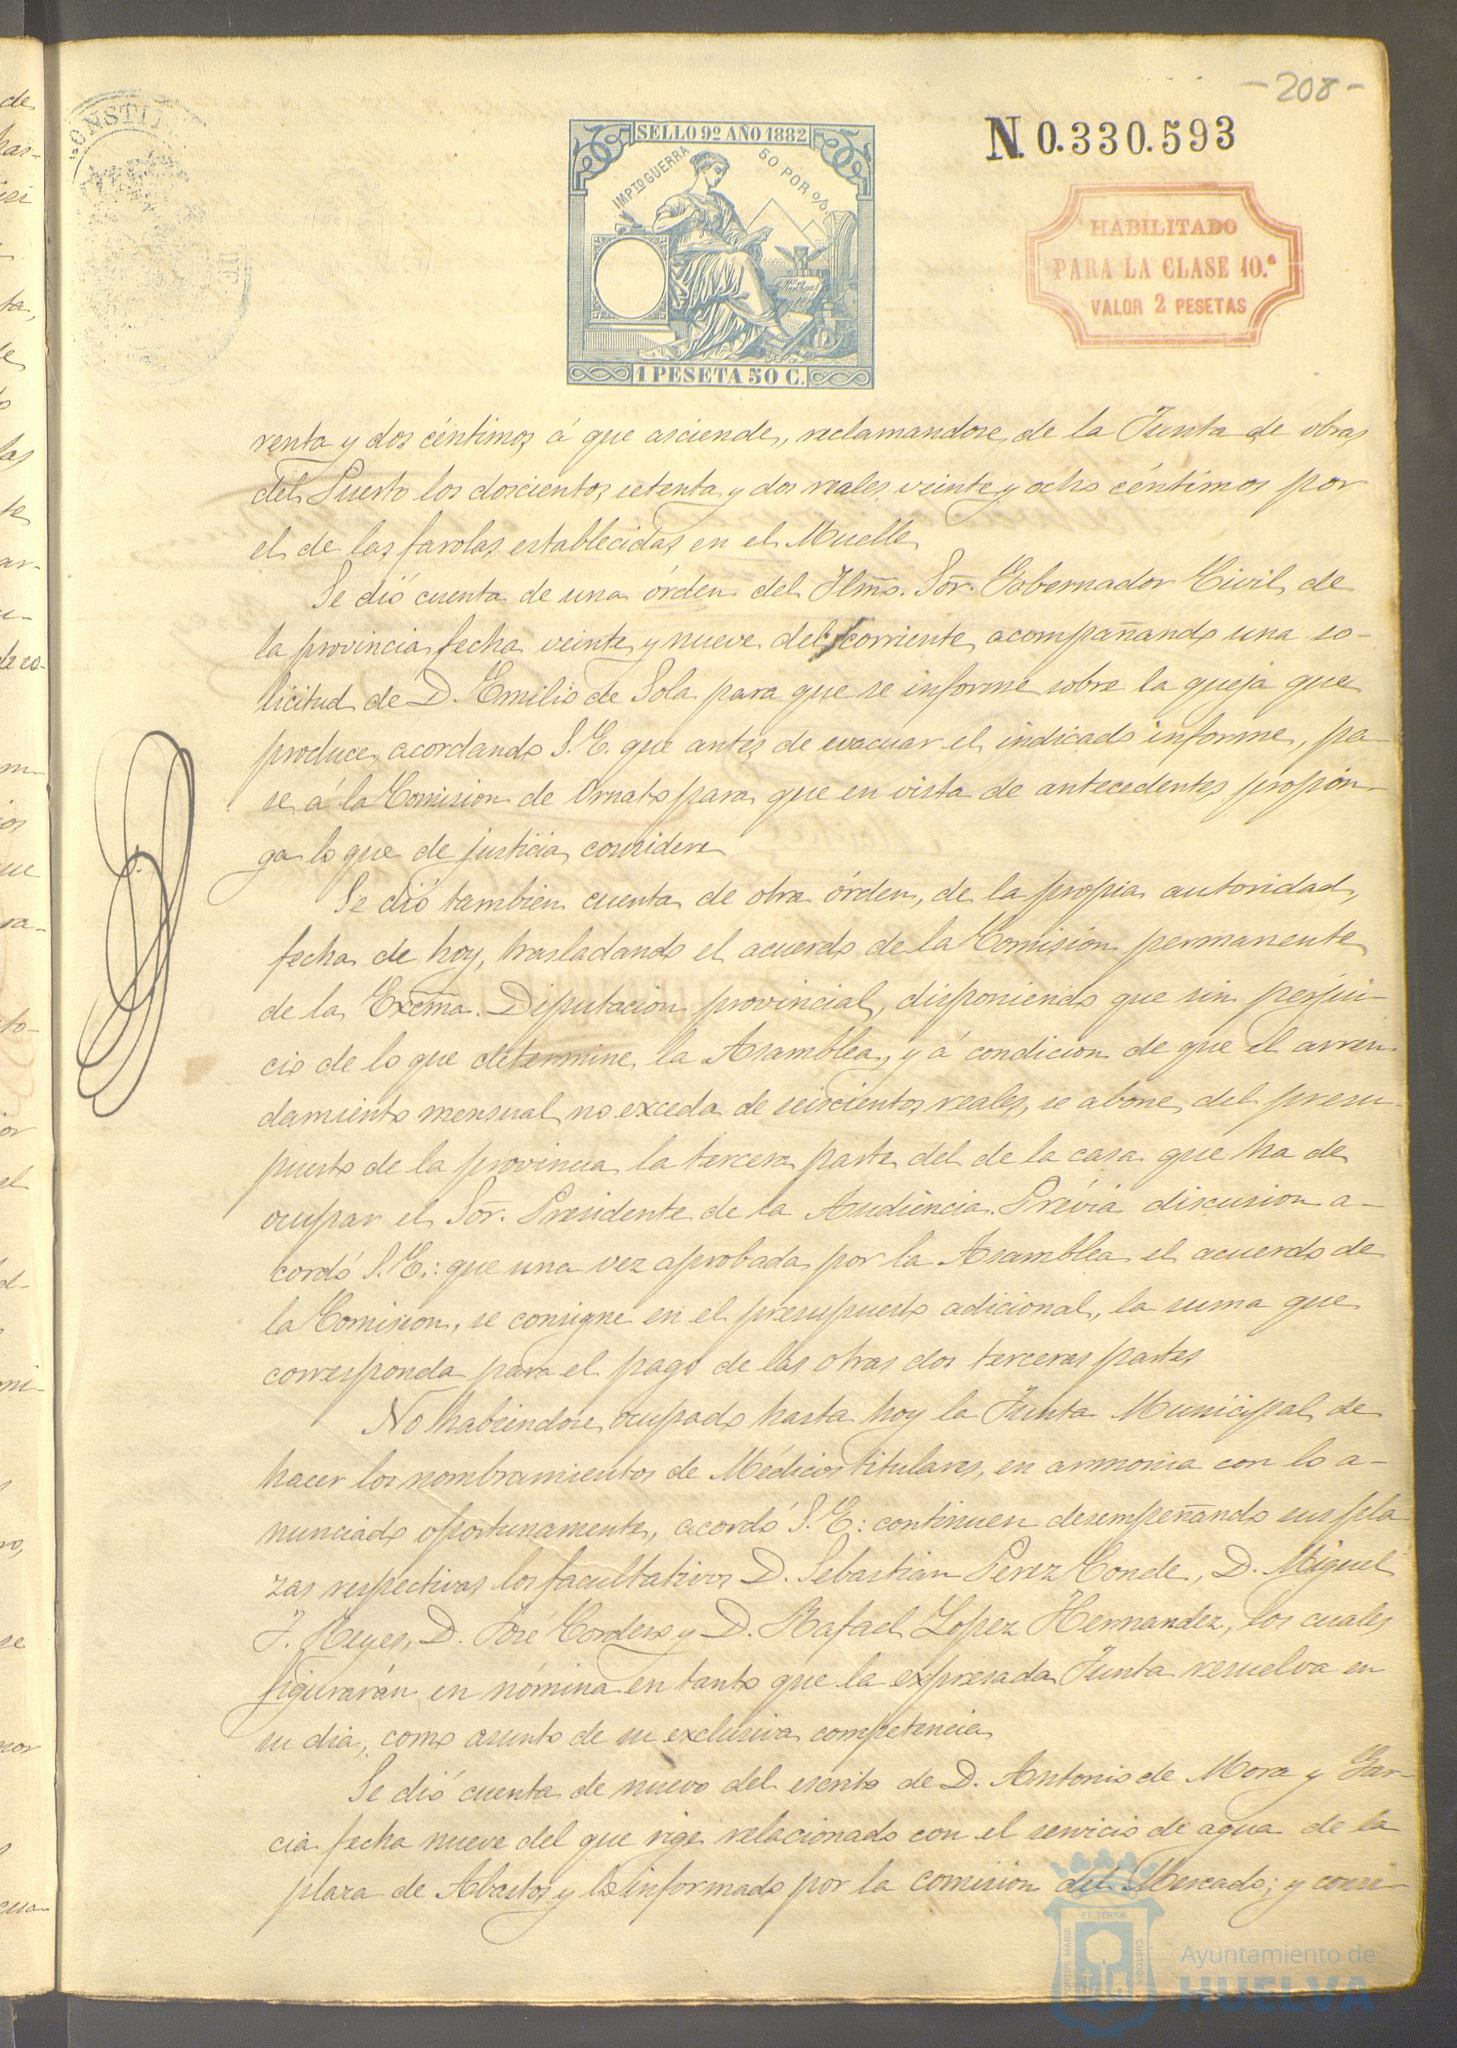 -208-
CONSTI
SELLO 9º AÑO 1882
IMPTO GUERRA 50 POR %
1 PESETA 50 C.
N. 0.330.593
HABILITADO
PARA LA CLASE 10.ª
VALOR 2 PESETAS
venta y dos céntimos á que asciende, reclamandose de la Junta de obras
del Puerto los doscientos setenta y dos reales veinte y ocho céntimos por
el de las farolas establecidas en el Muelle
Se dió cuenta de una órden del Ilmo. Sor. Gobernador Civil de
la provincia fecha veinte y nueve del corriente acompañando una so-
licitud de D. Emilio de Sola para que se informe sobre la queja que
produce, acordando S.E. que antes de evacuar el indicado informe, pa-
se á la Comision de Ornato para que en vista de antecedentes propon-
ga lo que de justicia considere
Se dió tambien cuenta de otra órden, de la propia autoridad,
fecha de hoy, trasladando el acuerdo de la Comisión permanente
de la Excma. Diputacion provincial, disponiendo que sin perjui-
cio de lo que determine la Asamblea, y á condicion de que el arren-
damiento mensual no exceda de seiscientos reales, se abone del presu-
puesto de la provincia la tercera parte del de la casa que ha de
ocupar el Sor. Presidente de la Audiencia. Prévia discusion a-
cordó S.E.: que una vez aprobada por la Asamblea el acuerdo de
la Comision, se consigne en el presupuesto adicional, la suma que
corresponda para el pago de las otras dos terceras partes
No habiendose ocupado hasta hoy la Junta Municipal de
hacer los nombramientos de Médicos titulares, en armonia con lo a-
nunciado oportunamente, acordó S.E.: continuen desempeñando sus pla-
zas respectivas los facultativos D. Sebastian Perez Conde, D. Miguel
J. Reyes, D. José Cordero y D. Rafael Lopez Hernandez, los cuales
figurarán en nómina en tanto que la expresada Junta resuelva en
su dia, como asunto de su exclusiva competencia
Se dió cuenta de nuevo del escrito de D. Antonio de Mora y Gar-
cia fecha nueve del que rige relacionado con el servicio de agua de la
plaza de Abastos y lo informado por la comision del Mercado; y consi-
Ayuntamiento de
HUELVA